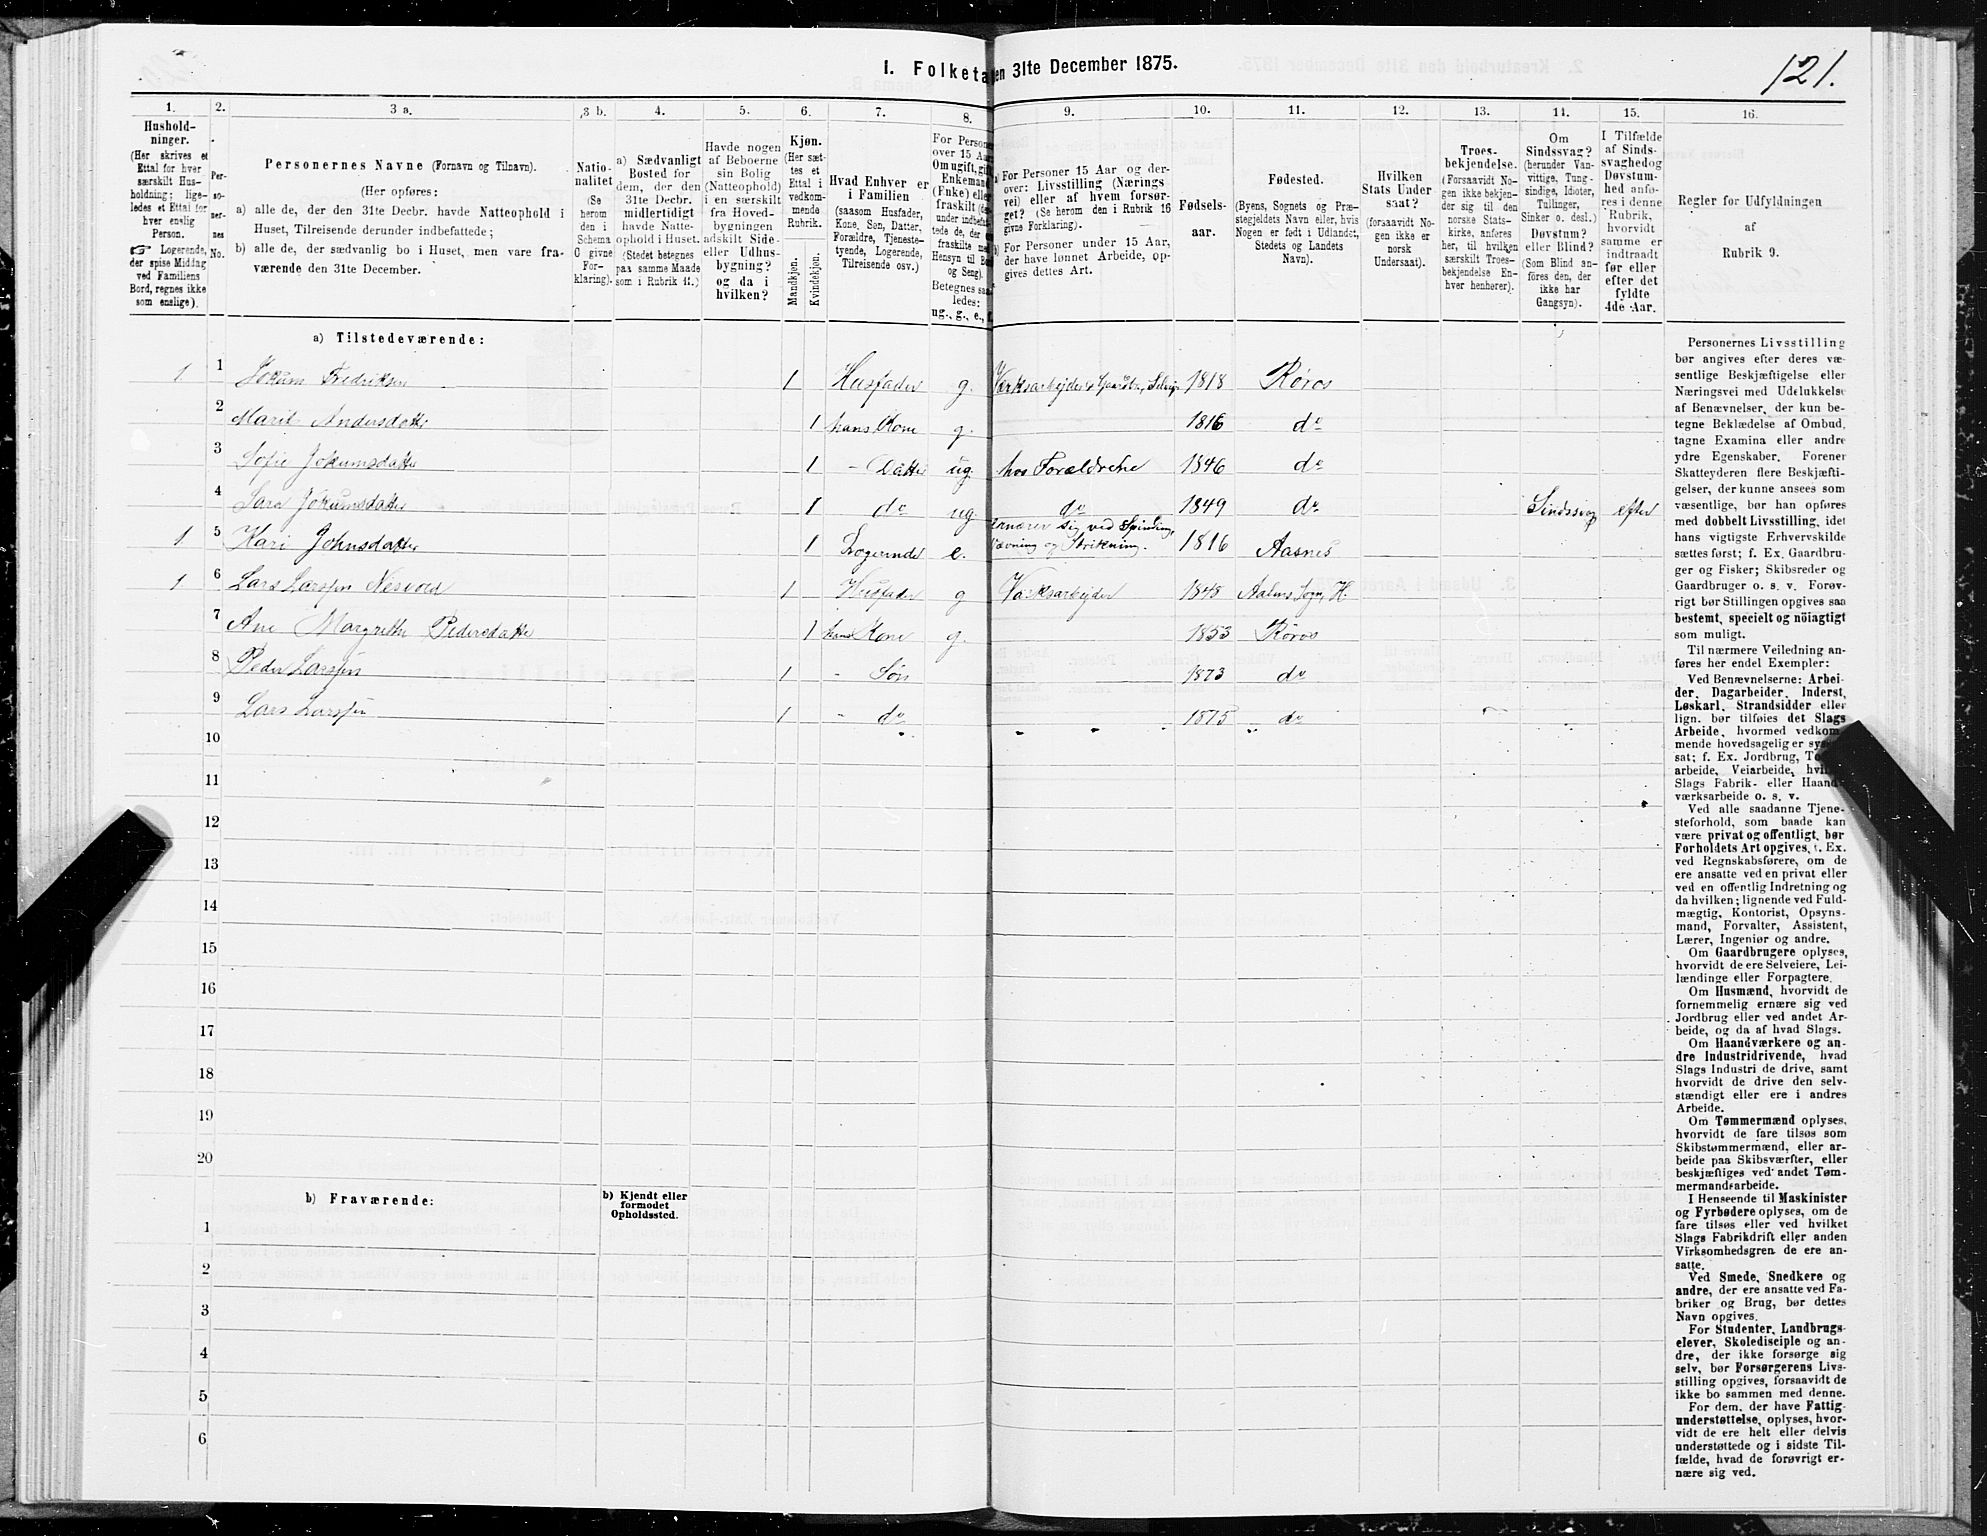 I. Folketæ en 31te December 1875.
121.
1. 2. 3 a. 3 b. 4. 5. 6. 7. 8. 9. 10. 11. 12. 13. 14. 15. 16.
Hushold-
ninger.
(Her skrives et
Ettal for hver
særskilt Hus-
holdning; lige-
ledes et Ettal for
hver enslig
Person.
☞ Logerende,
der spise Middag
ved Familiens
Bord, regnes ikke
som enslige).
Per-
so-
ner-
nes
No.
Personernes Navne (Fornavn og Tilnavn).
(Her opføres:
a) alle de, der den 31te Decbr. havde Natteophold i
Huset, Tilreisende derunder indbefattede;
b) alle de, der sædvanlig bo i Huset, men vare fra-
værende den 31te December.
Natio-
nalitet
(Se
herom
den i
Schema
C givne
For-
klaring).
a) Sædvanligt
Bosted for
dem, der den
31te Decbr.
midlertidigt
havde Natte-
ophold i Huset.
(Stedet betegnes
paa samme Maade
som i Rubrik 11.)
Havde nogen
af Beboerne
sin Bolig
(Natteophold)
i en særskilt
fra Hoved-
bygningen
adskilt Side-
eller Udhus-
bygning?
og da i
hvilken?
Kjøn.
(Her sæt-
tes et
Ettal i
vedkom-
mende
Rubrik.
Mandkjøn.
Kvindekjøn.
Hvad Enhver er
i Familien
(saasom Husfader,
Kone, Søn, Datter,
Forældre, Tjeneste-
tyende, Logerende,
Tilreisende osv.)
For Persone
over 15 Aar
Omugift, gift
Enkemand
(Enke) eller
fraskilt
under indbefat-
tede de, der er
fraskilte med
Hensyn til Bo
og Seng).
Betegnes saa-
ledes:
ug., g., e., f.
a) For Personer 15 Aar og der-
over: Livsstilling (Nærings
vei) eller af hvem forsør-
get? (Se herom den i Rubrik 16
givne Forklaring).
b) For Personer under 15 Aar,
der have lønnet Arbeide, op-
gives dettes Art.
Fødsels-
aar.
Fødested.
(Byens, Sognets og Præ-
stegjeldets Navn eller, hvis
Nogen er født i Udlandet,
Stedets og Landets
Navn).
Hvilken
Stats Under-
saat?
(forsaavidt No-
gen ikke er
norsk
Undersaat).
Troes-
bekjendelse.
(Forsaavidt No-
gen ikke bekjen-
der sig til den
norske Stats-
kirke, anføres
her, til hvilken
særskilt Troes-
bekjendelse En-
hver henhører).
Om
Sindssvag?
(herunder Van-
vittige, Tung-
sindige, Idioter,
Tullinger,
Sinker o. desl.)
Døvstum?
eller Blind?
(Som Blind an-
føres den, der
ikke har
Gangsyn).
I Tilfælde
af Sinds-
svaghedog
Døvstum-
hed anfø-
res i denne
Rubrik,
hvorvidt
samme er
indtraadt
før eller
efter det
fyldte
4de Aar.
Regler for Udfyldningen
af
Rubrik 9.
a) Tilstedeværende:
1 1 Jokum Fredriksen 1 Husfader g. 1818 Røros
2 Marit Andersdatter 1 hans Kone g. 1816 do
3 Sofie Jokumsdatter 1 - Datter ug. hos Forældrene 1846 do
4 Sara Jokumsdatter 1 do ug. do 1849 do Sindssvag efter
1 5 Kari Johnsdatter 1 Logerende e. ernærer sig ved Spinding, Vævning og Strikning. 1816 Aasnes
1 6 Lars Larssen Nesvold 1 Husfader g Værksarbejder 1848 Sogn, H.
7 Ane Margrethe Pedersdatter 1 hans Kone g. 1853 Røros
8 Peder Larssen 1 - Søn 1873 do
9 Lars Larssen 1 - do 1875 do
10
11
12
13
14
15
16
17
18
19
20
b) Fraværende:
b) Kjendt eller
formodet
Opholdssted.
1
2
3
4
5
6
Personernes Livsstilling
bør angives efter deres væ-
sentlige Beskjæftigelse eller
Næringsvei med Udelukkelse
af Benævnelser, der kun be-
tegne Beklædelse af Ombud,
tagne Examina eller andre
ydre Egenskaber. Forener
Skatteyderen flere Beskjæfti-
gelser, der kunne ansees som
væsentlige, bør han opføres
med dobbelt Livsstilling, idet
hans vigtigste Erhvervskilde
sættes først; f. Ex. Gaardbru-
ger og Fisker; Skibsreder og
Gaardbruger o. s. v. Forøv-
rigt bør Stillingen opgives saa
bestemt, specielt og nöiagtigt
som muligt.
Til nærmere Veiledning an-
føres her endel Exempler:
Ved Benævnelserne: Arbei-
der, Dagarbeider, Inderst,
Løskarl, Strandsidder eller
lign. bør tilføies det Slags
Arbeide, hvormed vedkom-
mende hovedsagelig er syssel
sat; f. Ex. Jordbrug, T
arbeide, Veiarbeide, hvil
Slags Fabrik- eller Haand
værksarbeide o. s. v.
Ved alle saadanne Tjene-
steforhold, som baade kan
være privat og offentligt, bør
Forholdets Art opgives, f. Ex.
ved Regnskabsførere, om de
ere ansatte ved en privat eller
ved en offentlig Indretning og
da hvilken; lignende ved Fuld-
mægtig, Kontorist, Opsyns-
mand, Forvalter, Assistent,
Lærer, Ingeniør og andre.
Om Gaardbrugere oplyses,
hvorvidt de ere Selveiere, Lei-
lændinge eller Forpagtere.
Om Husmænd, hvorvidt de
fornemmelig ernære sig ved
Jordbrug eller ved andet Ar-
beide, og da af hvad Slags.
Om Haandværkere og an-
dre Industridrivende, hvad
Slags Industri de drive, samt
hvorvidt de drive den selv-
stændigt eller ere i andres
Arbeide.
Om Tømmermænd oplyses,
hvorvidt de fare tilsøs som
Skibstømmermænd, eller ar-
beide paa Skibsværfter, eller
beskjæftiges ved andet Tøm-
mermandsarbeide.
I Henseende til Maskinister
og Fyrbødere oplyses, om de
fare tilsøs eller ved hvilket
Slags Fabrikdrift eller anden
Virksomhedsgren de ere an-
satte.
Ved Smede, Snedkere og
andre, der ere ansatte ved Fa-
briker og Brug, bør dettes
Navn opgives.
For Studenter, Landbrugs-
elever, Skoledisciple og an-
dre, der ikke forsørge sig
selv, bør Forsørgerens Livs-
stilling opgives, forsaavidt de
ikke bo sammen med denne.
For dem, der have Fattig-
understøttelse, oplyses, hvor-
vidt de ere helt eller delvis
understøttede og i sidste Til-
fælde, hvad de forøvrigt er-
nære sig ved.